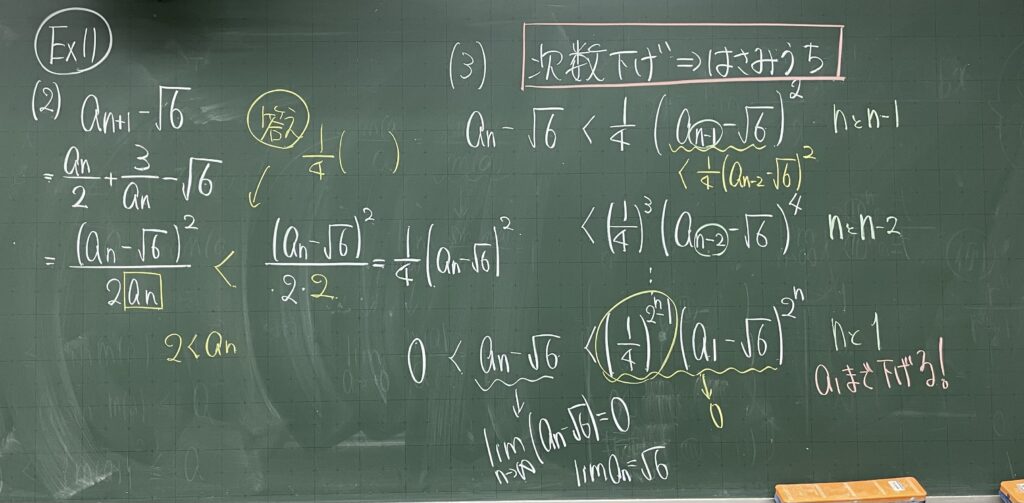 Ex11
(2) a_{n+1} - √6
= a_n/2 + 3/a_n - √6
= (a_n - √6)^2 / 2a_n < (a_n - √6)^2 / 2・2 = 1/4 (a_n - √6)^2
2 < a_n
答え
1/4 (   )
(3) 次数下げ ⇒ はさみうち
a_n - √6 < 1/4 (a_{n-1} - √6)^2 nとn-1
< 1/4 (a_{n-2} - √6)^2
< (1/4)^3 (a_{n-2} - √6)^4 nとn-2
⋮
0 < a_n - √6 < (1/4)^{2^n} (a_1 - √6)^{2^n} nと1
a_1まで下げる!
↓ 0
lim_{n→∞} (a_n - √6) = 0
lim a_n = √6